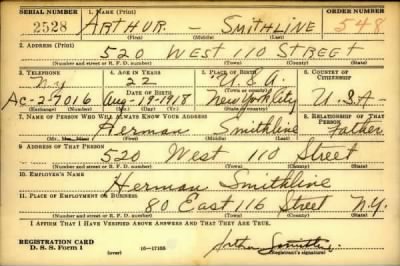 SERIAL NUMBER 1. NAME (Print) ORDER NUMBER
2528 ARTHUR - SMITHLINE 548
(First) (Middle) (Last)
2. ADDRESS (Print)
520 WEST 110 STREET
(Number and street or R. F. D. number) (Town) (County) (State)
3. TELEPHONE 4. AGE IN YEARS 5. PLACE OF BIRTH 6. COUNTRY OF CITIZENSHIP
N.Y 22 U.S.A.
DATE OF BIRTH
AC-2-7016 Aug-19-1918 New York City U.S.A-
(Exchange) (Number) (Mo.) (Day) (Yr.) (Town or county) (State or country)
7. NAME OF PERSON WHO WILL ALWAYS KNOW YOUR ADDRESS 8. RELATIONSHIP OF THAT PERSON
Herman Smithline Father
(Mr., Mrs., Miss) (First) (Middle) (Last)
9. ADDRESS OF THAT PERSON
520 West 110 Street
(Number and street or R. F. D. number) (Town) (County) (State)
10. EMPLOYER'S NAME
Herman Smithline
11. PLACE OF EMPLOYMENT OR BUSINESS
80 East 116 Street N.Y.
(Number and street or R. F. D. number) (Town) (County) (State)
I AFFIRM THAT I HAVE VERIFIED ABOVE ANSWERS AND THAT THEY ARE TRUE.
REGISTRATION CARD
D. S. S. Form 1 (over) 16-17105 Arthur Smithline
(Registrant's signature)